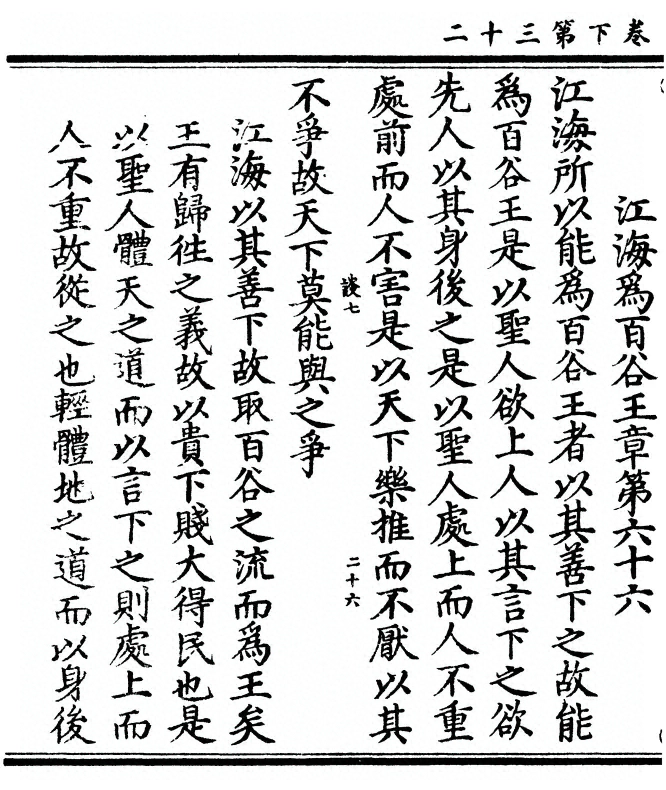 卷下第三十二
江海爲百谷王章第六十六
江海所以能爲百谷王者以其善下之故能
爲百谷王是以聖人欲上人以其言下之欲
先人以其身後之是以聖人處上而人不重
處前而人不害是以天下樂推而不厭以其
談七
二十六
不爭故天下莫能與之爭
江海以其善下故取百谷之流而爲王矣
王有歸徃之義故以貴下賤大得民也是
以聖人體天之道而以言下之則處上而
人不重故從之也輕體地之道而以身後